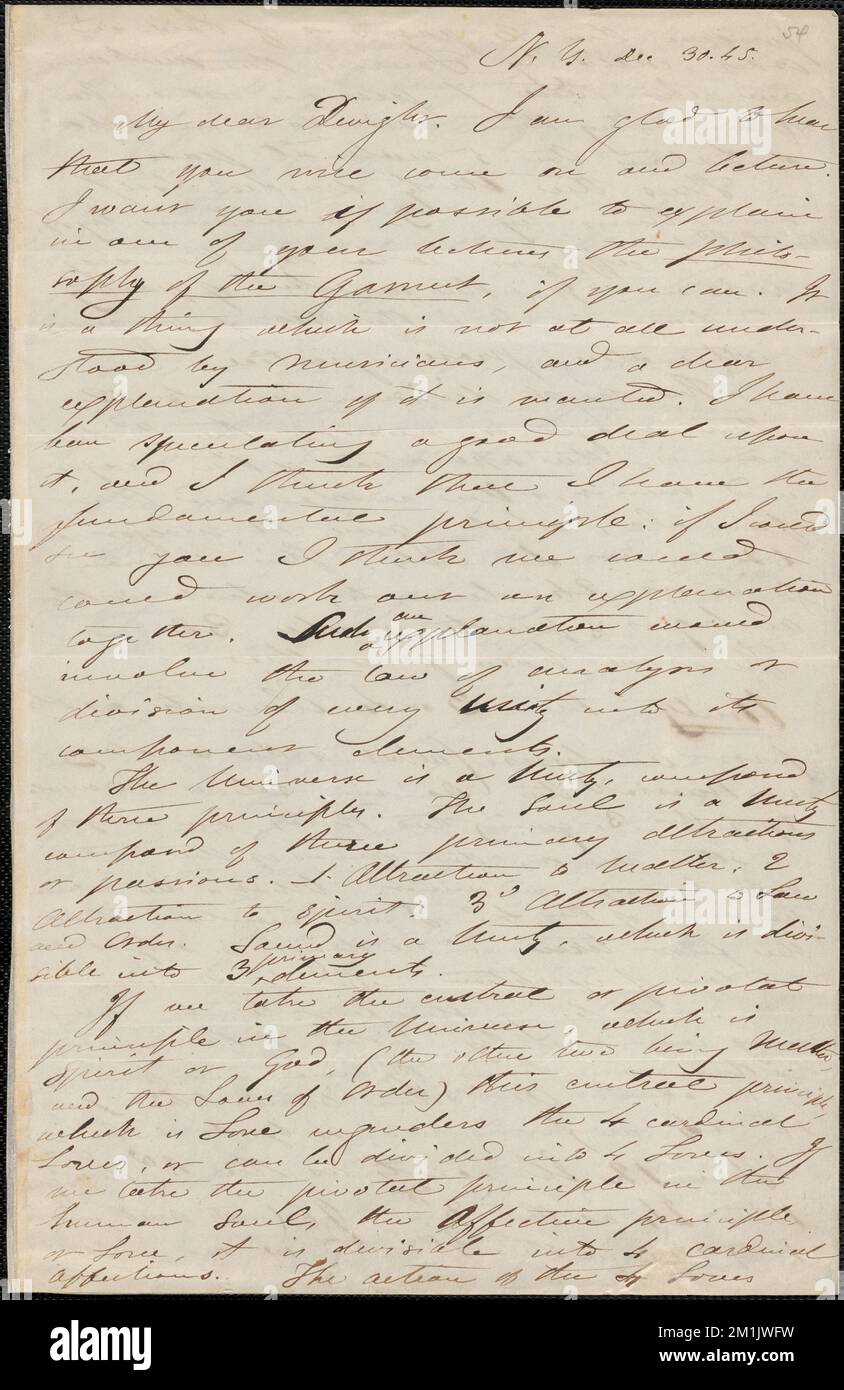 54
N. Y. Dec 30. 45.
My dear Dwight. I am glad to hear
that you will come on and lecture.
I want you if possible to explain
in one of your lectures the philo-
sophy of the Gamut, if you can. It
is a thing which is not at all under-
stood by musicians, and a clear
explanation of it is wanted. I have
been speculating a good deal upon
it, and I think that I have the
fundamental principle: if I could
see you I think we could
could work out an explanation
together. Such an explanation would
involve the law of analysis or
division of every Unity into its
component elements.
The Universe is a Unity, composed
of three principles. The Soul is a Unity
composed of three primary attractions
or passions. 1 Attraction to Matter. 2
Attraction to Spirit. 3d Attraction to Law
and Order. Sound is a Unity, which is divi-
sible into 3 primary elements.
If we take the central or pivotal
principle in the Universe, which is
Spirit or God, (the other two being Matter,
and the Laws of Order) this central principle,
which is Love engenders the 4 cardinal
Loves, or can be divided into 4 Loves. If
we take the pivotal principle in the
human soul, the Affective principle
or Love, it is divisible into 4 cardinal
affections. The action of the 4 Loves
alamy
a
alamy
Image ID: 2M1JWFW
www.alamy.com